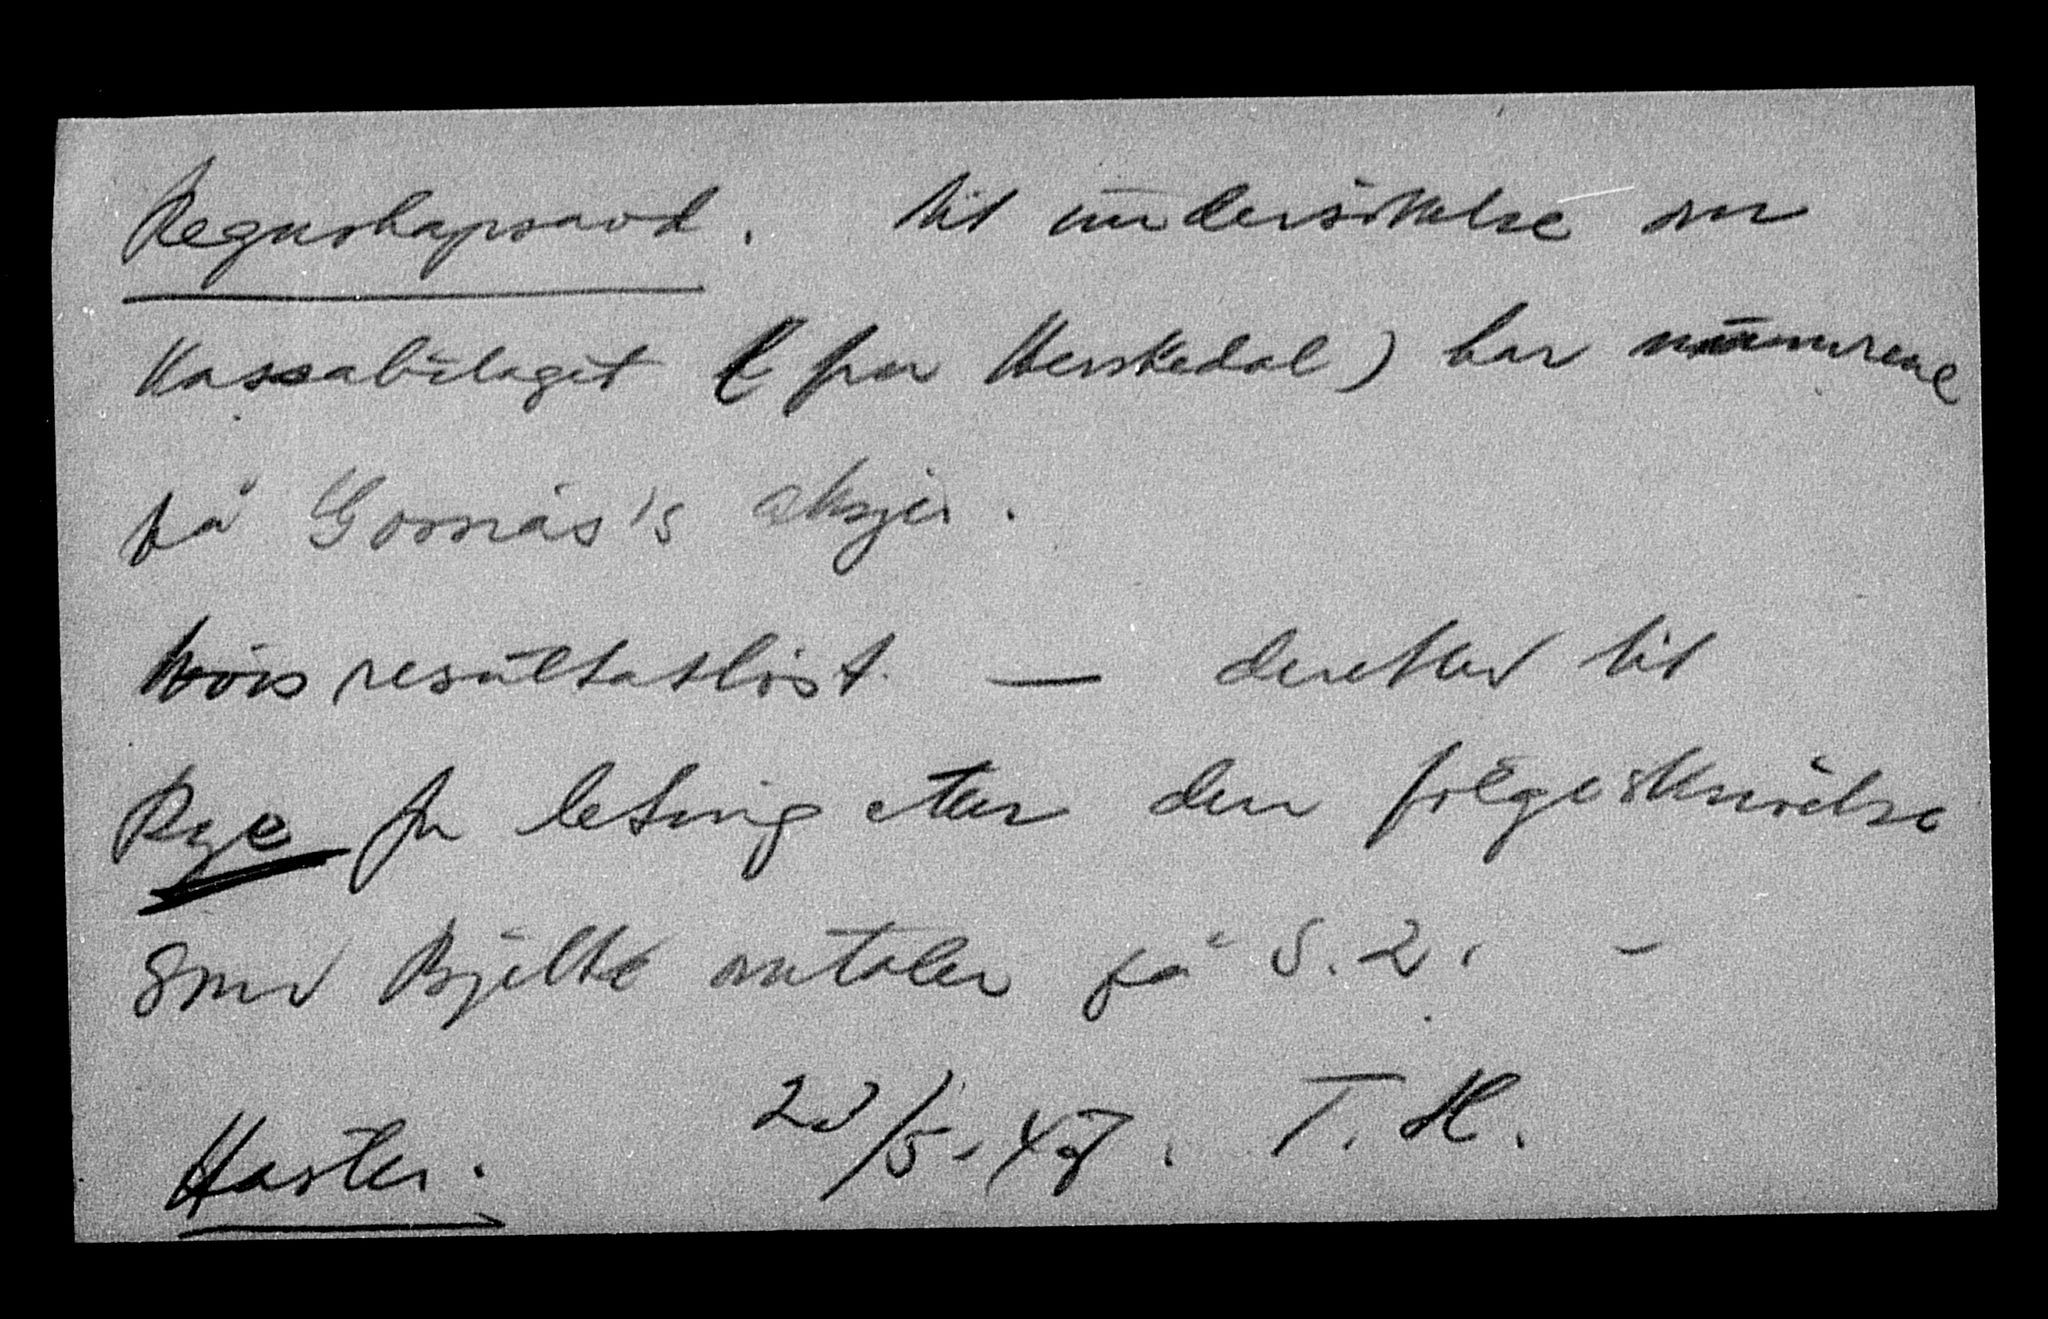 Regnskapsavd. til undersökelse om
Kassabilaget (fra Herskedal) har numrene
på Gornäs's aksjer.
Hvis resultatlöst. — deretter til
Rye for leting etter den fölgeskrivelse
Snr Bjelke omtaler på S. 2. -
Haster. 23/5-47. T. H.